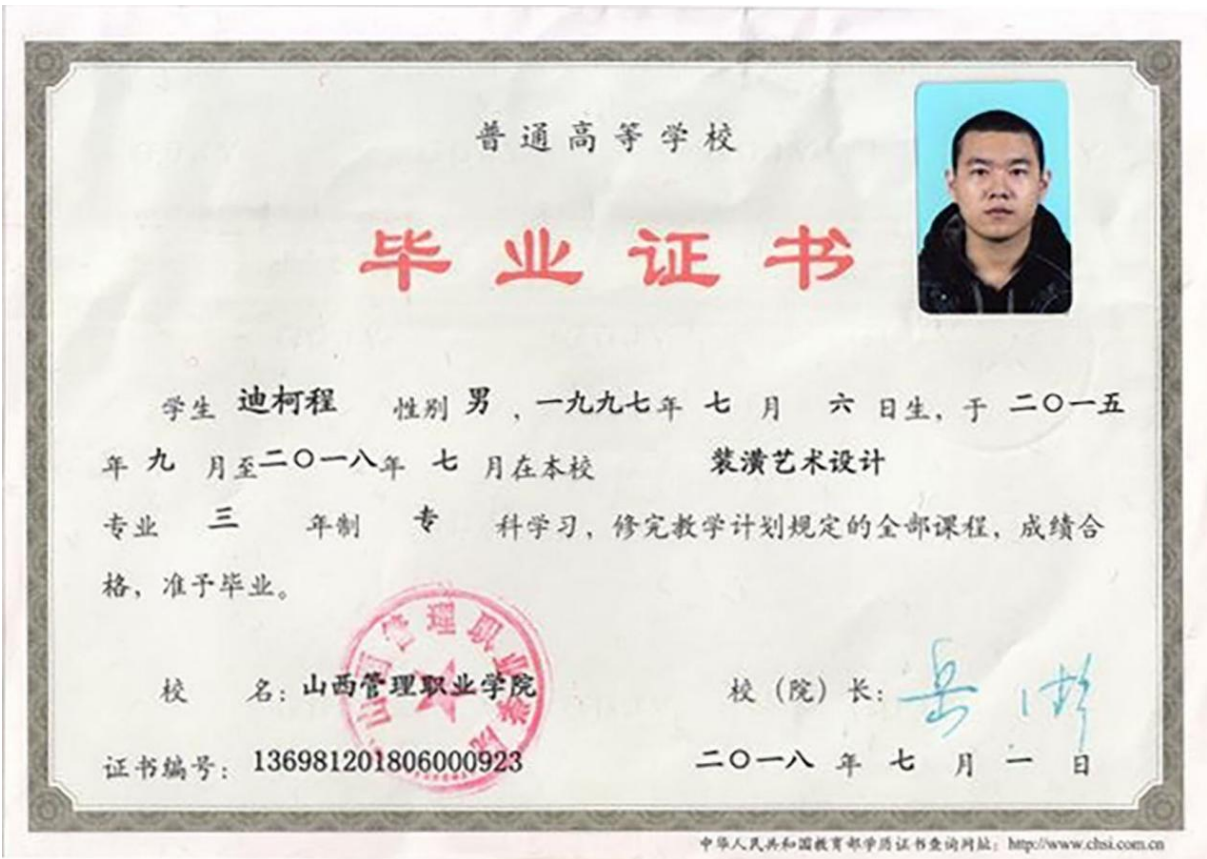 普通高等学校
毕业证书
学生 迪柯程 性别 男 ,一九九七年 七 月 六 日生,于 二〇一五
年 九 月至二〇一八年 七 月在本校 装潢艺术设计
专业 三 年制 专 科学习,修完教学计划规定的全部课程,成绩合
格,准予毕业。
山西管理职业学院
校 名:山西管理职业学院 校(院)长:岳
证书编号:136981201806000923 二〇一八 年 七 月 一 日
中华人民共和国教育部学历证书查询网址:http://www.chsi.com.cn